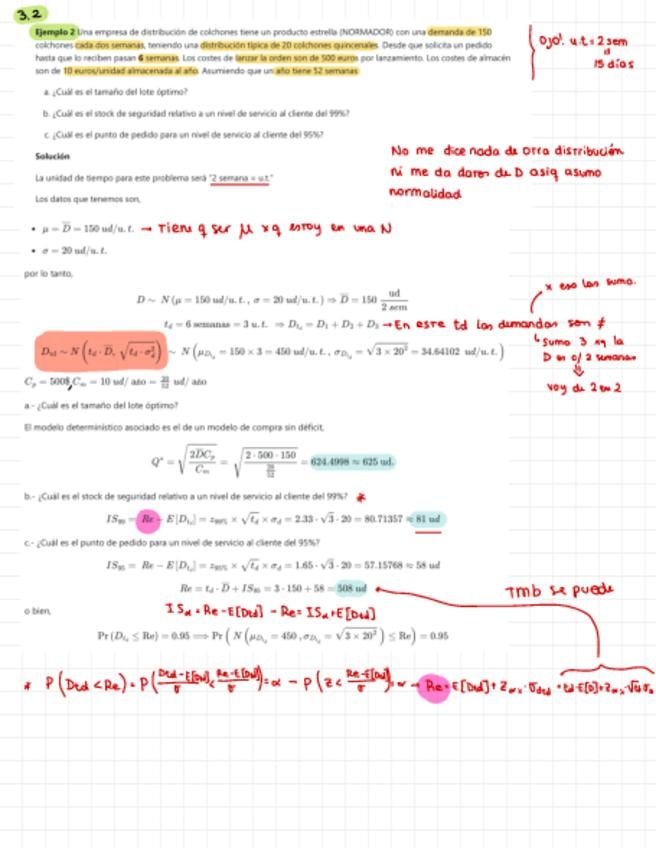 3.2
Ejemplo 2 Una empresa de distribución de colchones tiene un producto estrella (NORMADOR) con una demanda de 150
colchones cada dos semanas, teniendo una distribución típica de 20 colchones quincenales. Desde que solicita un pedido
hasta que lo reciben pasan 6 semanas. Los costes de lanzar la orden son de 500 euros por lanzamiento. Los costes de almacén
son de 10 euros/unidad almacenada al año. Asumiendo que un año tiene 52 semanas
Ojo! u.t = 2 sem
=
15 días
a. ¿Cuál es el tamaño del lote óptimo?
b. ¿Cuál es el stock de seguridad relativo a un nivel de servicio al cliente del 99%?
c. ¿Cuál es el punto de pedido para un nivel de servicio al cliente del 95%?
Solución
No me dice nada de otra distribución
ni me da datos de D asiq asumo
normalidad
La unidad de tiempo para este problema será "2 semana = u.t."
Los datos que tenemos son,
• μ = D̄ = 150 ud/u. t. → Tiene q ser μ xq estoy en una N
• σ = 20 ud/u. t.
por lo tanto,
D ∼ N (μ = 150 ud/u. t. , σ = 20 ud/u. t. ) ⇒ D̄ = 150 ud / 2 sem
x eso las sumo.
t_d = 6 semanas = 3 u. t. ⇒ D_{t_d} = D₁ + D₂ + D₃ → En este td las demandas son ≠
↳ Sumo 3 xq la
D es c/ 2 semanas
⇓
voy de 2 en 2
D_{td} ∼ N (t_d · D̄, √(t_d · σ_d²)) ∼ N (μ_{D_{t_d}} = 150 × 3 = 450 ud/u. t. , σ_{D_{t_d}} = √(3 × 20²) = 34.64102 ud/u. t. )
C_p = 500$, C_m = 10 ud/ año = ud/ año
a.- ¿Cuál es el tamaño del lote óptimo?
El modelo determinístico asociado es el de un modelo de compra sin déficit,
Q* = √(2D̄C_p / C_m) = = 624.4998 ≈ 625 ud.
b.- ¿Cuál es el stock de seguridad relativo a un nivel de servicio al cliente del 99%? *
IS₉₉ = Re − E [D_{t_d}] = z₉₉% × √t_d × σ_d = 2.33 · √3 · 20 = 80.71357 ≈ 81 ud
c.- ¿Cuál es el punto de pedido para un nivel de servicio al cliente del 95%?
IS₉₅ = Re − E [D_{t_d}] = z₉₅% × √t_d × σ_d = 1.65 · √3 · 20 = 57.15768 ≈ 58 ud
Re = t_d · D̄ + IS₉₅ = 3 · 150 + 58 = 508 ud
Tmb se puede
o bien,
ISα = Re - E[Dtd] - Re = ISα + E[Dtd]
Pr (D_{t_d} ≤ Re) = 0.95 ⟹ Pr ( N (μ_{D_{t_d}} = 450 , σ_{D_{t_d}} = √(3 × 20²)) ≤ Re) = 0.95
* P(Dtd < Re) = P(Dtd - E[Dtd] / σ < Re - E[Dtd] / σ) = α - P(Z < Re - E[Dtd] / σ) = α → Re = E[Dtd] + Zα · σdtd = td · E[D] + Zα ·